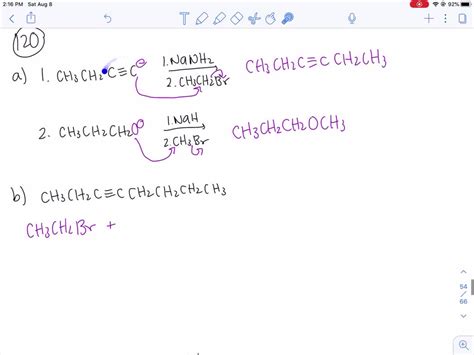 2:16 PM Sat Aug 8
92%
120
a) 1. CH3CH2C≡C⊖ 1. NaNH2 2. CH3CH2Br CH3CH2C≡CCH2CH3
2. CH3CH2CH2O⊖ 1. NaH 2. CH3Br CH3CH2CH2OCH3
b) CH3CH2C≡CCH2CH2CH2CH3
CH3CH2Br +
54
/
66